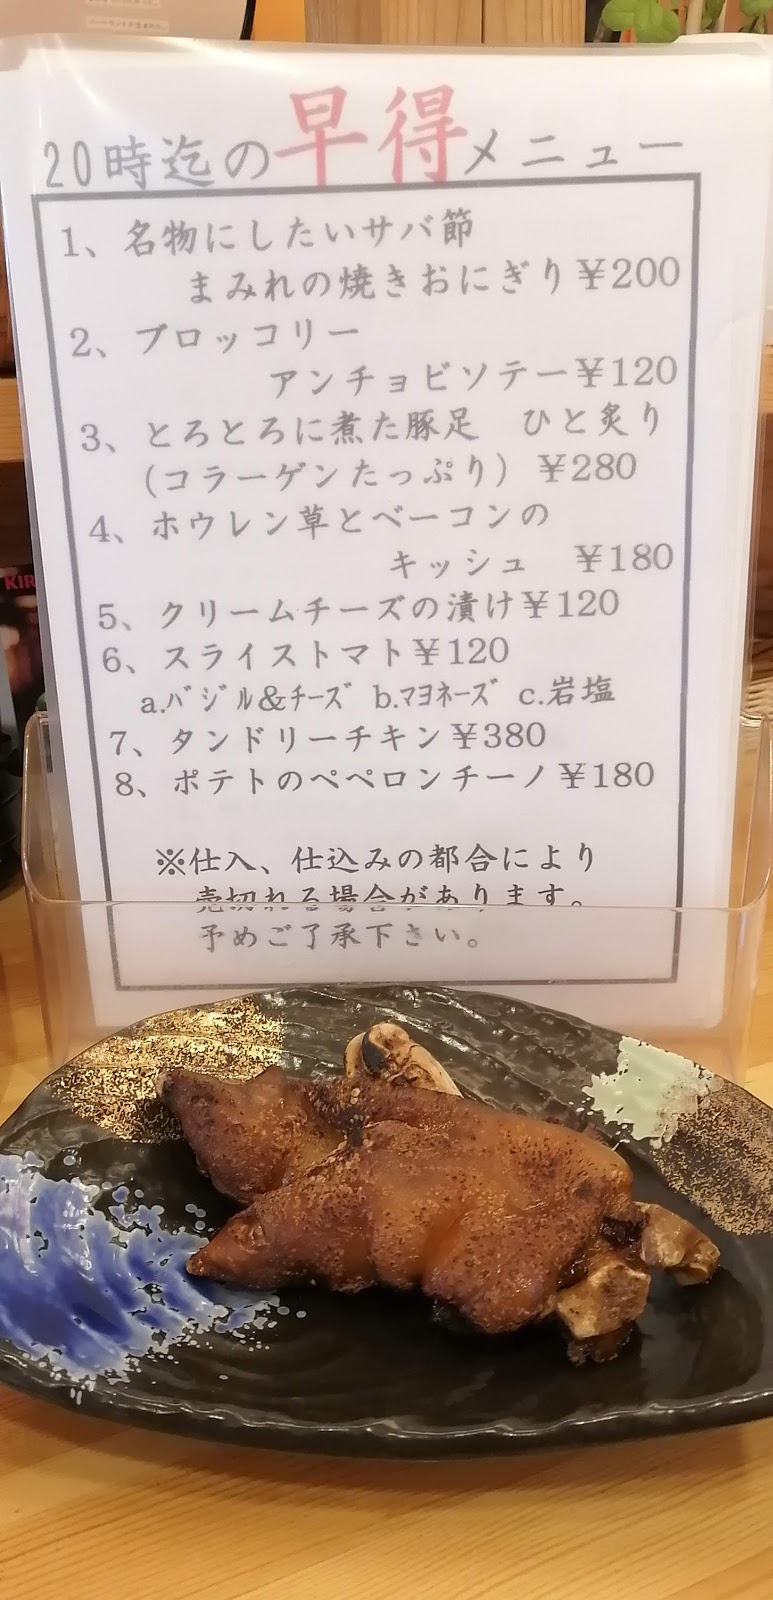 20時迄の早得メニュー
1、名物にしたいサバ節
まみれの焼きおにぎり¥200
2、ブロッコリー
アンチョビソテー¥120
3、とろとろに煮た豚足　ひと炙り
(コラーゲンたっぷり) ¥280
4、ホウレン草とベーコンの
キッシュ　¥180
5、クリームチーズの漬け¥120
6、スライストマト¥120
a.ﾊﾞｼﾞﾙ&ﾁｰｽﾞ b.ﾏﾖﾈｰｽﾞ c.岩塩
7、タンドリーチキン¥380
8、ポテトのペペロンチーノ¥180
※仕入、仕込みの都合により
売切れる場合があります。
予めご了承下さい。
KIR